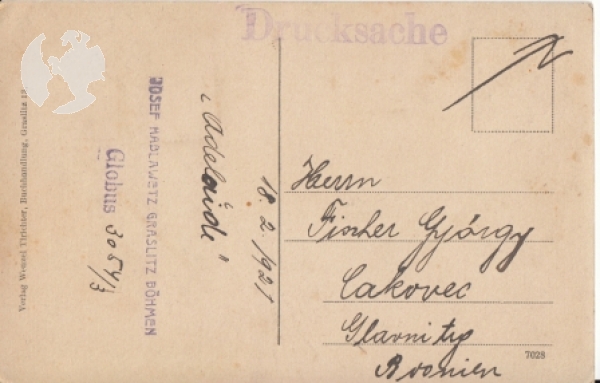 Drucksache
Verlag Wenzel Türichter, Buchhandlung, Graslitz
JOSEF HABLAWETZ GRASLITZ BÖHMEN
Globus 3054/3
„Adelaide"
18.2.1921
Herrn
Fischer György
Cakovec
Glavni trg
7028